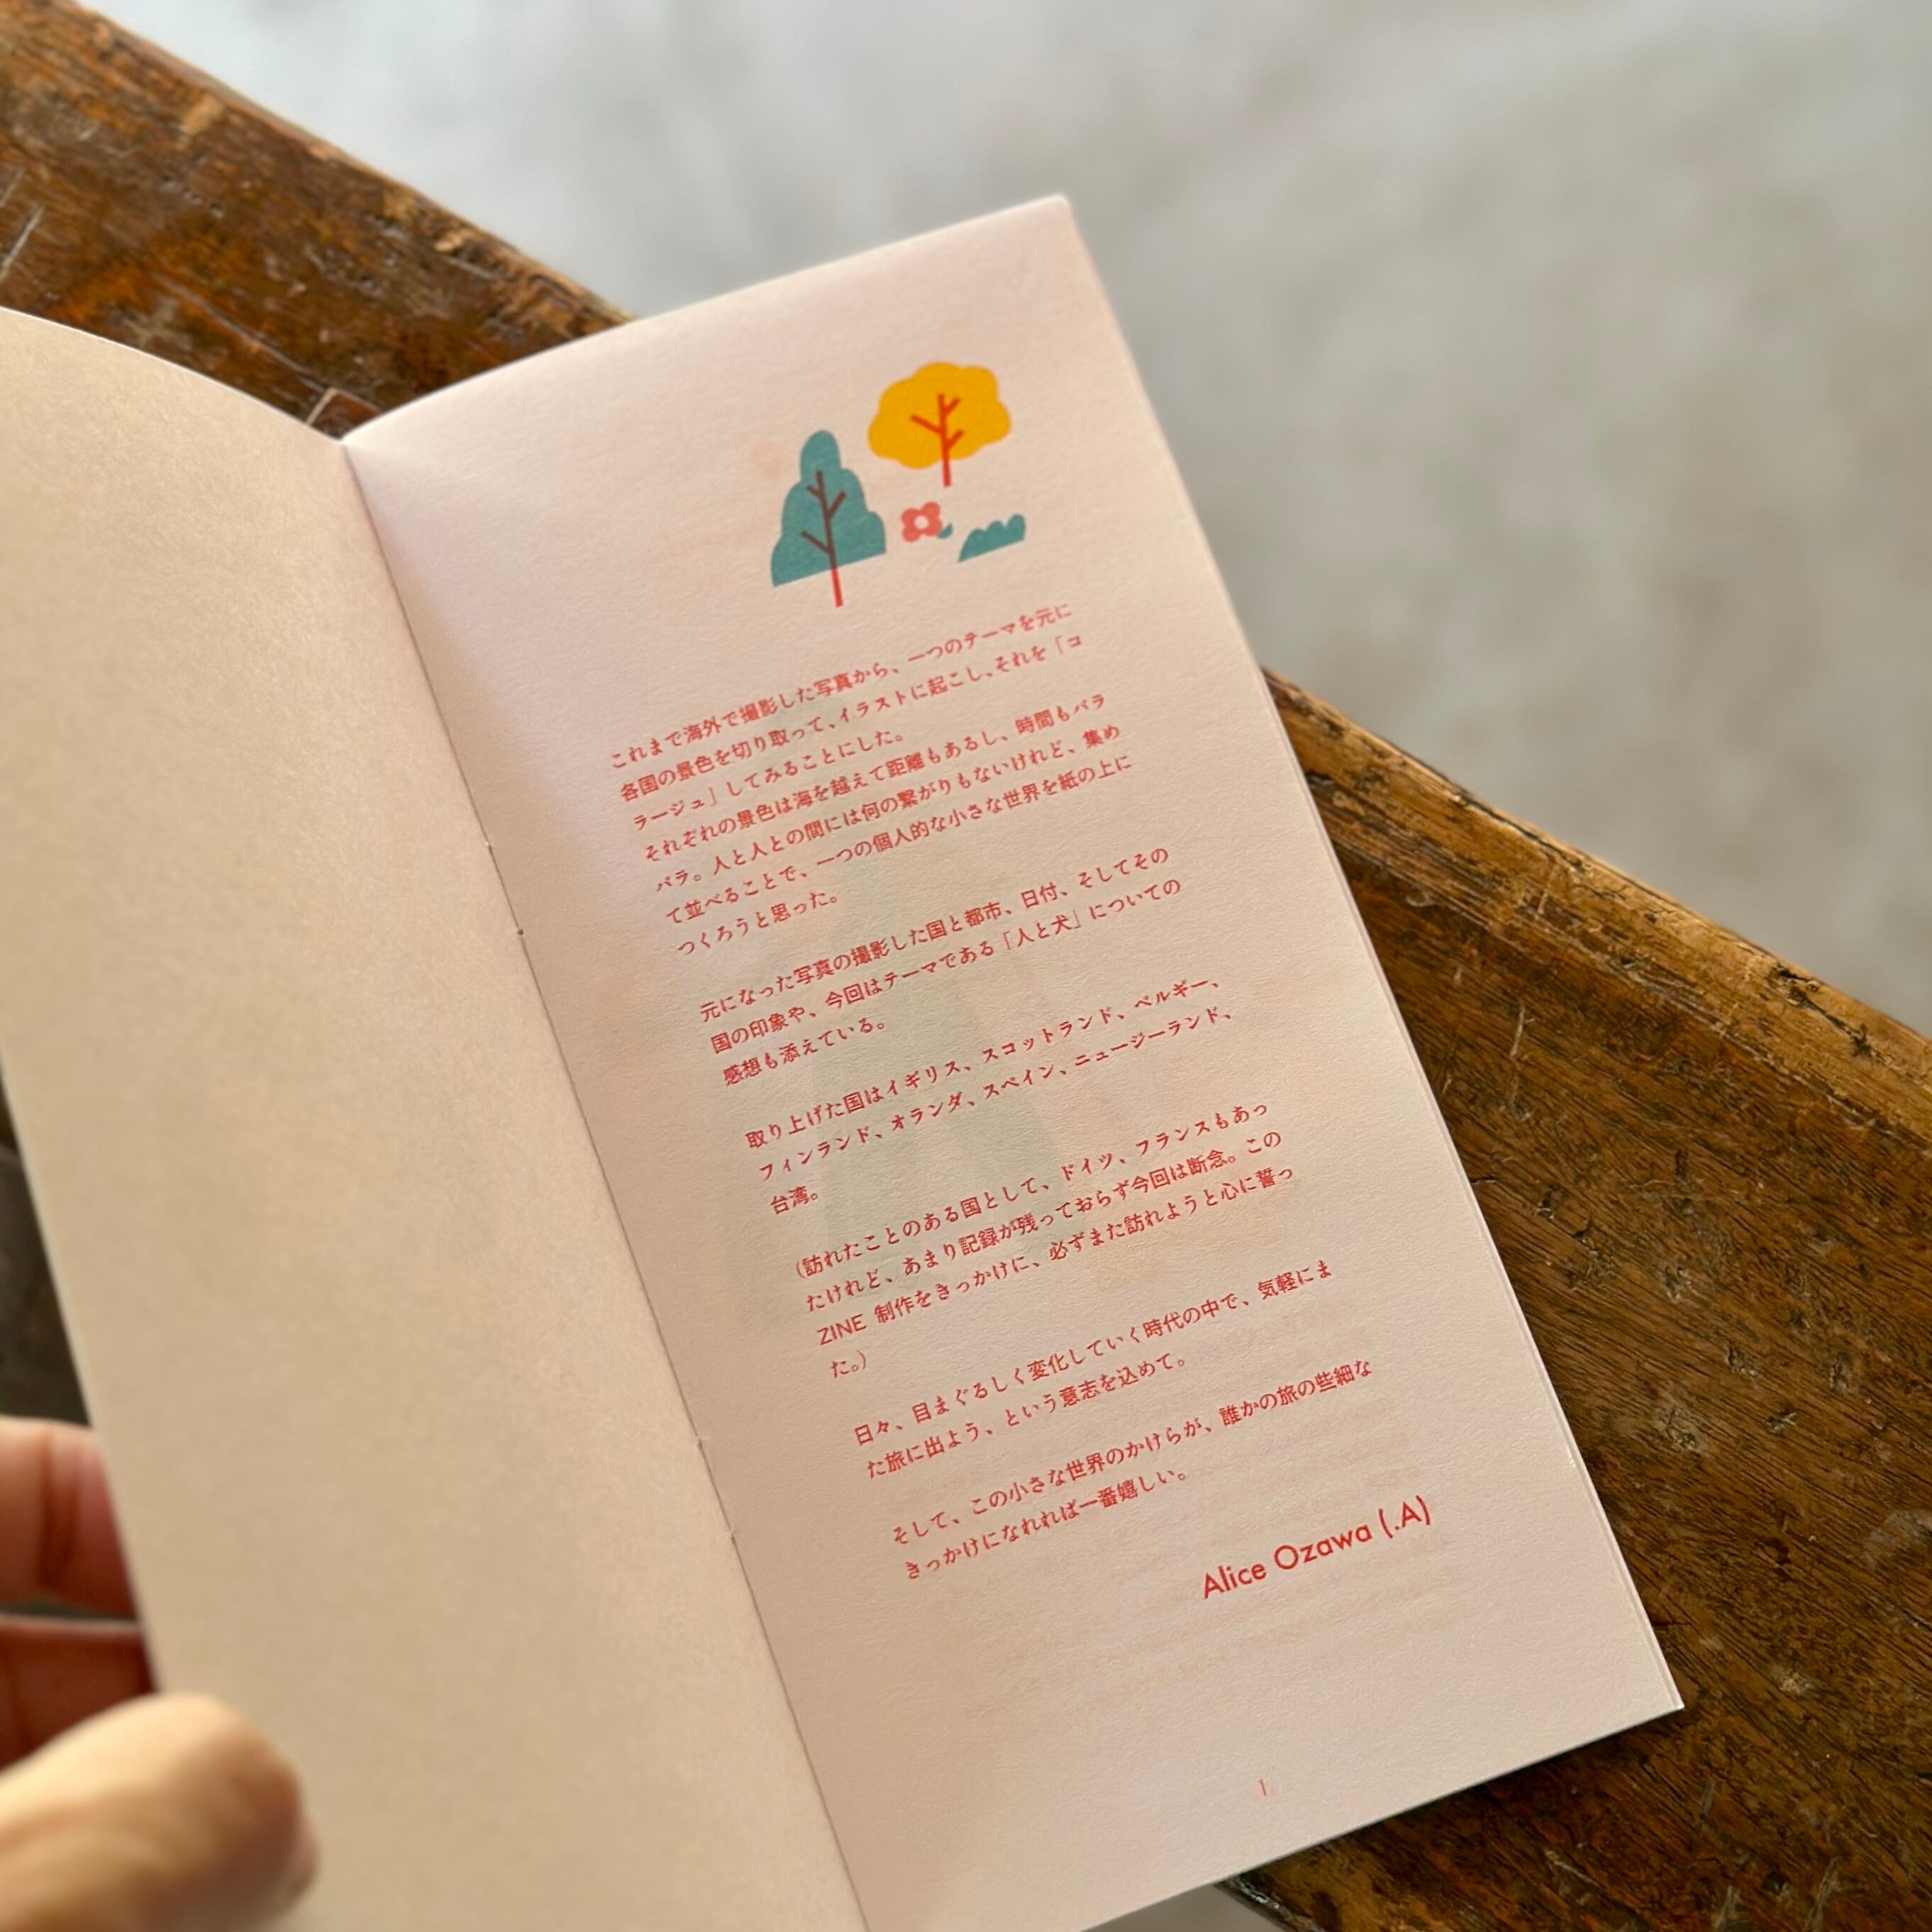 これまで海外で撮影した写真から、一つのテーマを元に
各国の景色を切り取って、イラストに起こし、それを「コ
ラージュ」してみることにした。
それぞれの景色は海を越えて距離もあるし、時間もバラ
バラ。人と人との間には何の繋がりもないけれど、集め
て並べることで、一つの個人的な小さな世界を紙の上に
つくろうと思った。
元になった写真の撮影した国と都市、日付、そしてその
国の印象や、今回はテーマである「人と犬」についての
感想も添えている。
取り上げた国はイギリス、スコットランド、ベルギー、
フィンランド、オランダ、スペイン、ニュージーランド、
台湾。
(訪れたことのある国として、ドイツ、フランスもあっ
たけれど、あまり記録が残っておらず今回は断念。この
ZINE 制作をきっかけに、必ずまた訪れようと心に誓っ
た。)
日々、目まぐるしく変化していく時代の中で、気軽にま
た旅に出よう、という意志を込めて。
そして、この小さな世界のかけらが、誰かの旅の些細な
きっかけになれれば一番嬉しい。
Alice Ozawa (.A)
1